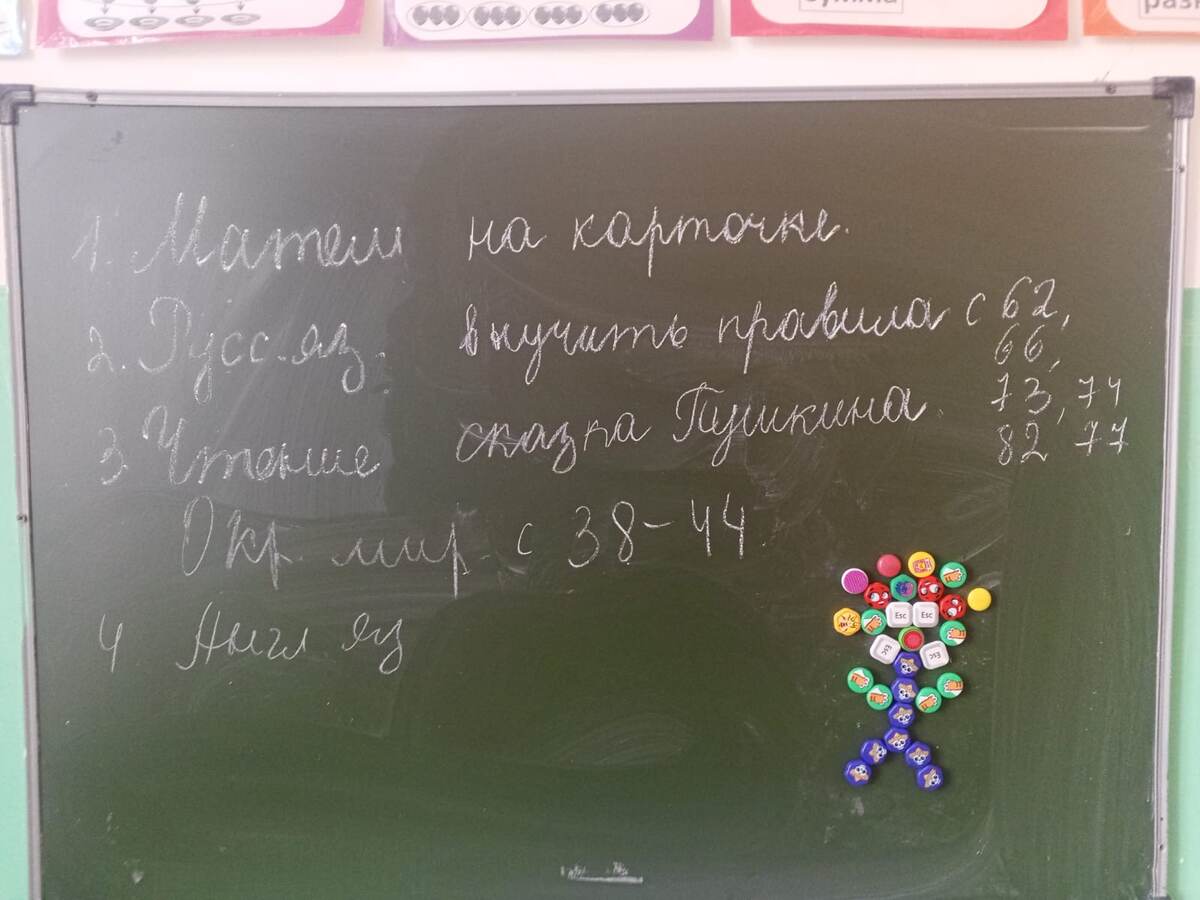 сумма
1. Матем на карточке.
2. Русс. яз. выучить правила с 62,
66,
3. Чтение сказка Пушкина. 73, 74
82 77
Окр. мир с 38-44.
4 Англ яз
Esc Esc
Esc Esc